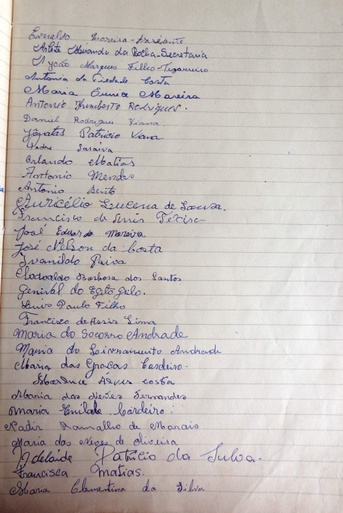 Moreira - Presidente
Arlete Miranda da Rocha - Secretaria
João Marques Filho - Tesoureiro
Antonia da Piedade Costa
Maria Eunice Moreira
Antonio Humberto Rodrigues.
Daniel Rodrigues Viana
Patricio Viana
Saraiva
Orlando Matias
Antonio Mendes
Antonio Bento
Lucena de Sousa.
Francisco de Assis
José Eduardo Moreira
José Nelson da Costa
Ivanildo Paiva
Clodoaldo Barbosa dos Santos
Genival do Egito
Luis Paulo Filho
Francisco de Assis Lima
Maria do Socorro Andrade
Maria do Livramento Andrade
Maria das Graças Cordeiro.
Alves costa
Maria das Neves Fernandes
Maria Cordeiro.
Ramalho de Morais
Maria das Neves de Oliveira
Adelaide Patricio da Silva.
Francisca Matias.
Maria Clementina da Silva